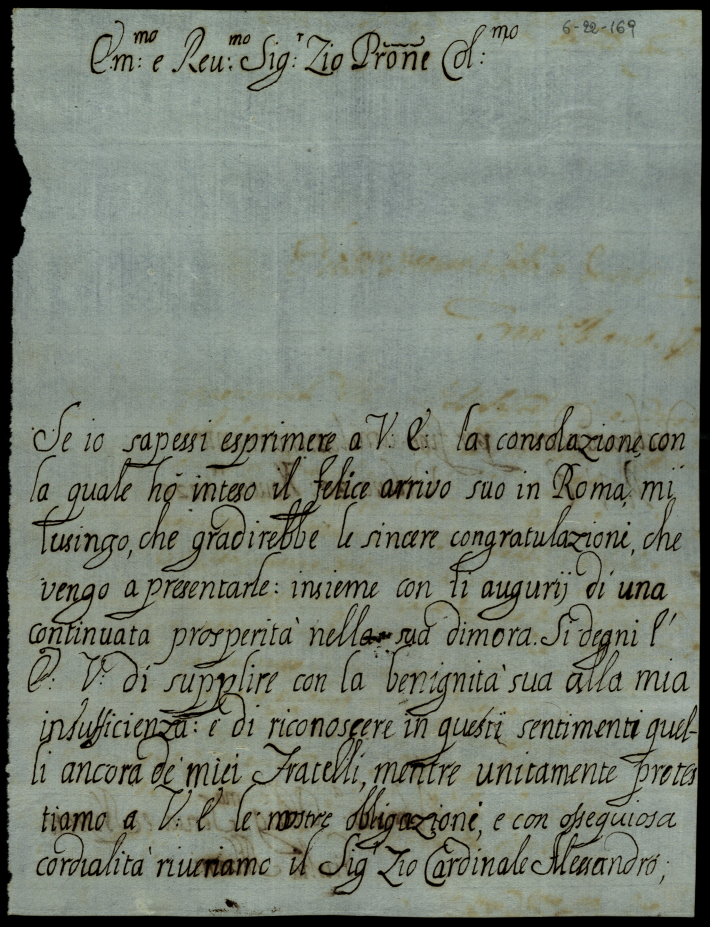 6-22-169
Em:mo e Reu:mo Sig:r Zio Prõne Col:mo
Se io sapessi esprimere a V: E: la consolazione, con
la quale hò inteso il felice arrivo suo in Roma, mi
lusingo, che gradirebbe le sincere congratulazioni, che
vengo a presentarle: insieme con li augurij di una
continuata prosperità nella sua dimora. Si degni l'
E: V: di supplire con la benignità sua alla mia
insufficienza: e di riconoscere in questi sentimenti quel-
li ancora de' miei Fratelli, mentre unitamente protes
tiamo a V: E: le nostre obligazioni, e con ossequiosa
cordialità riveriamo il Sig.r Zio Cardinale Alessandro;